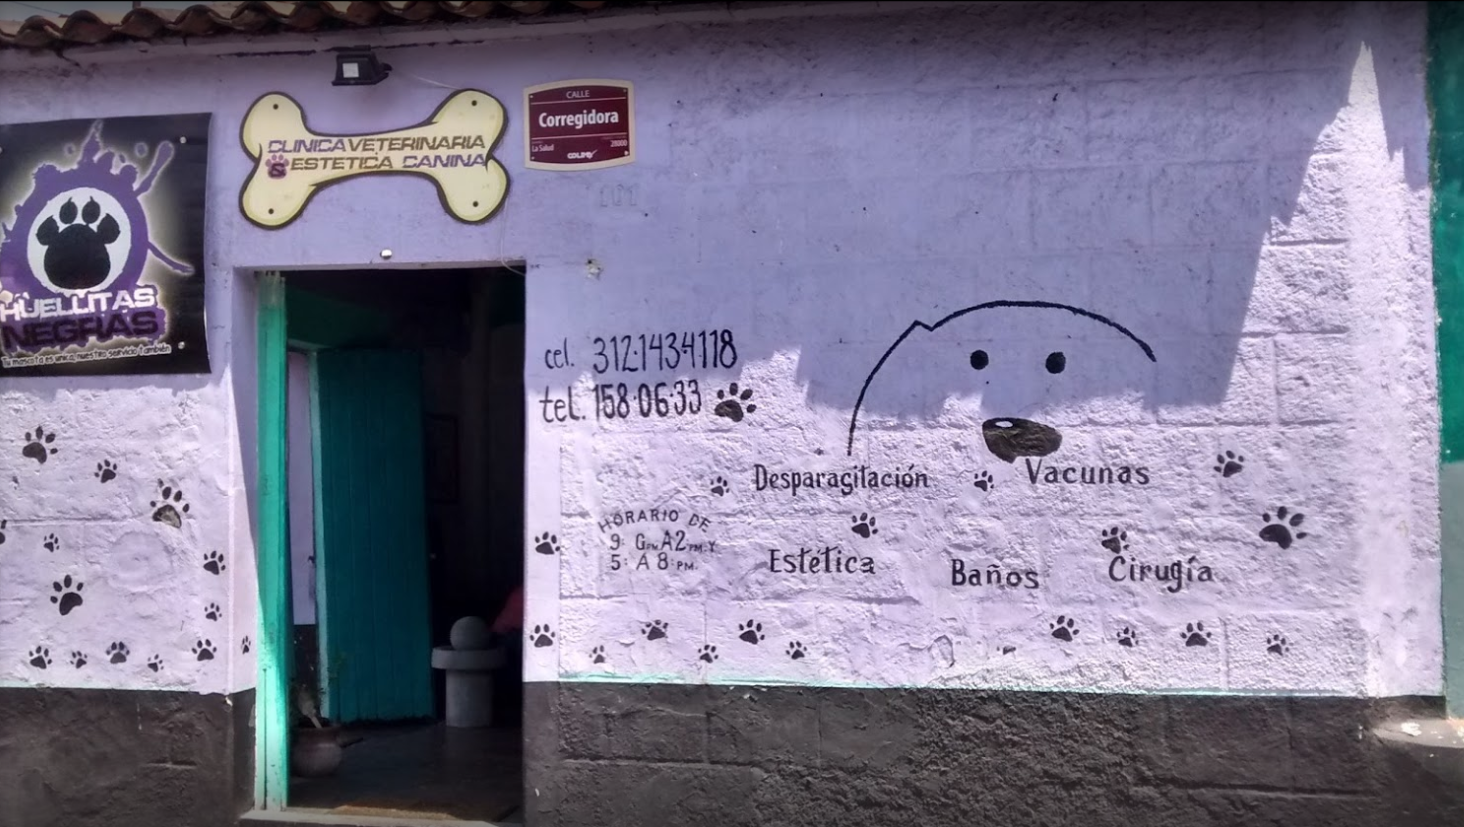 HUELLITAS
NEGRAS
Tu mascota es unica, nuestro servicio también
CLINICA VETERINARIA
& ESTETICA CANINA
CALLE
Corregidora
La Salud 28000
COLIMA
cel. 312·143·4118
tel. 158·06·33
Desparagitación
Vacunas
HORARIO DE
9: A 2 PM. Y
5: A 8: PM.
Estética
Baños
Cirugía